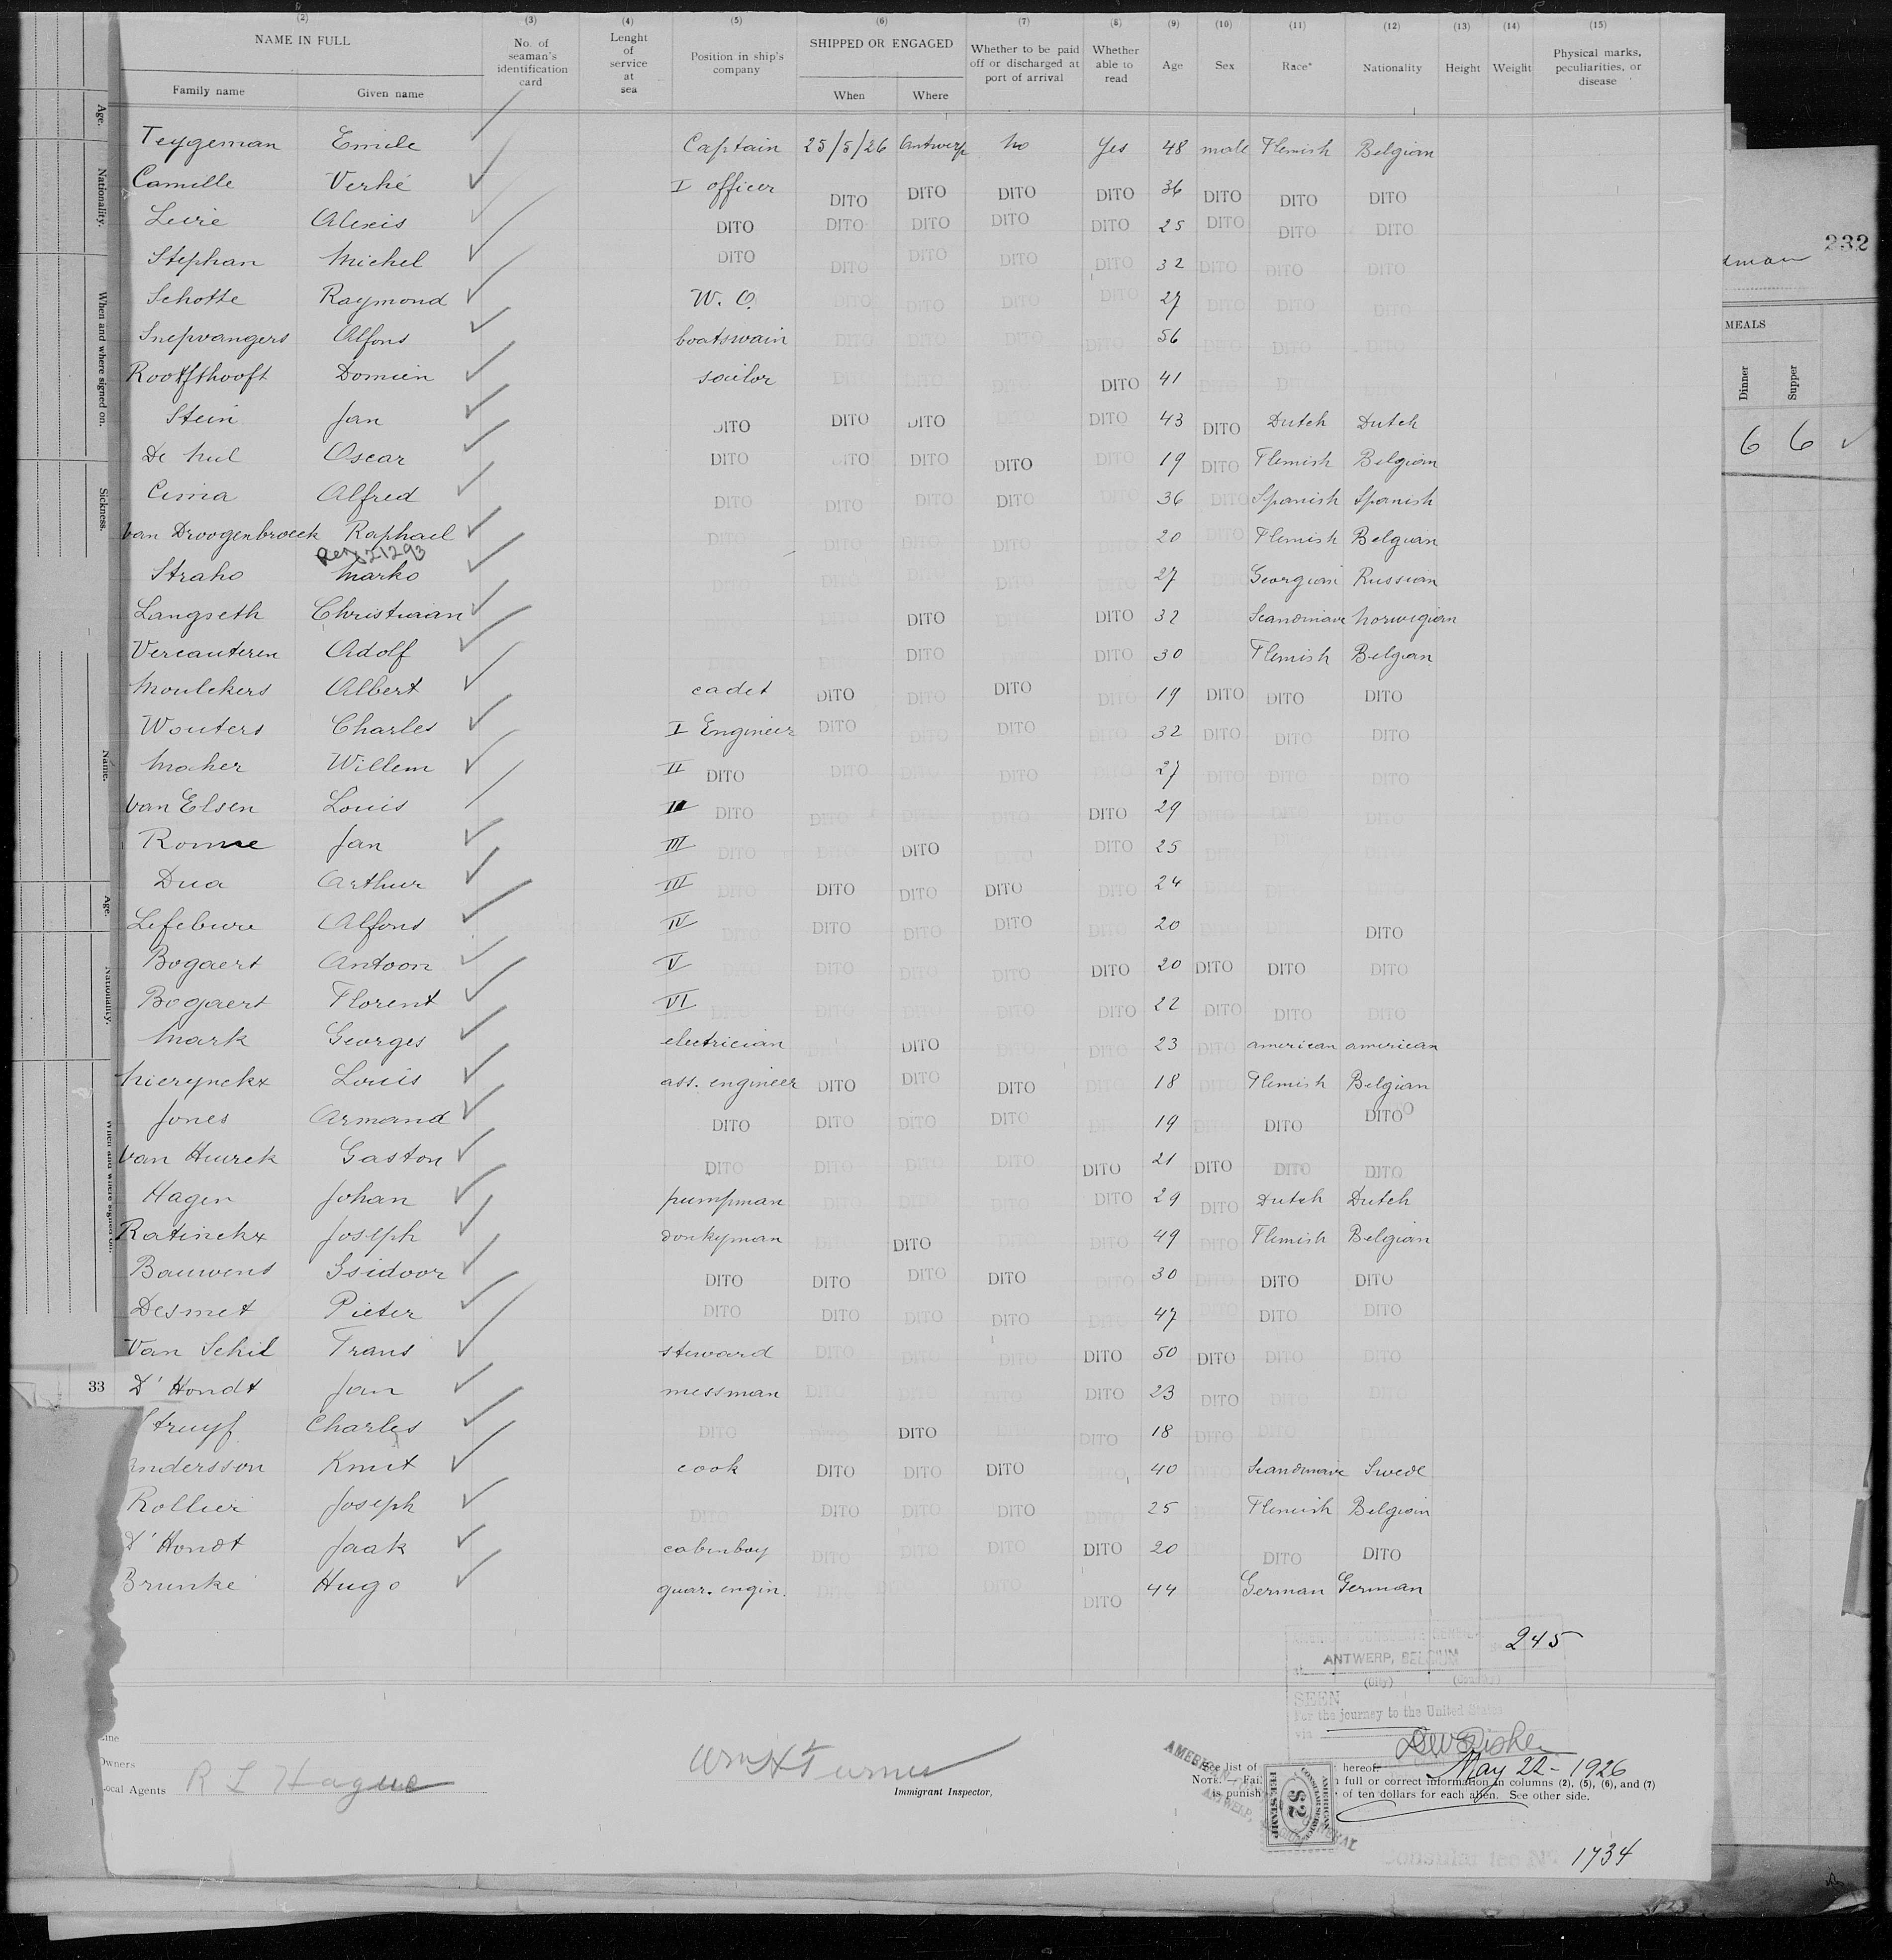 (2) (3) (4) (5) (6) (7) (8) (9) (10) (11) (12) (13) (14) (15)
NAME IN FULL No. of seaman's identification card Lenght of service at sea Position in ship's company SHIPPED OR ENGAGED Whether to be paid off or discharged at port of arrival Whether able to read Age Sex Race* Nationality Height Weight Physical marks, peculiarities, or disease
Family name Given name When Where
Teygeman Emile Captain 25/5/26 Antwerp No Yes 48 male Flemish Belgian
Camille Verhé I officer DITO DITO DITO DITO 36 DITO DITO DITO
Alexis DITO DITO DITO DITO DITO 25 DITO DITO DITO
Stephan Michel DITO DITO DITO DITO DITO 32 DITO DITO DITO
Schotte Raymond W. O. DITO DITO DITO DITO 27 DITO DITO DITO
Snepvangers Alfons boatswain DITO DITO DITO DITO 56 DITO DITO DITO
Rooffthooft Domien sailor DITO DITO DITO DITO 41
Stein Jan DITO DITO DITO DITO 43 DITO Dutch Dutch
De Nul Oscar DITO DITO DITO DITO DITO 19 DITO Flemish Belgian
Cima Alfred DITO DITO DITO DITO 36 DITO Spanish Spanish
Van Droogenbroeck Raphael DITO DITO DITO DITO 20 DITO Flemish Belgian
Straho Marko 27 DITO Georgian Russian
Langseth Christiaan DITO DITO 32 Scandinave Norwegian
Vercauteren Adolf DITO DITO 30 Flemish Belgian
Moulckers Albert cadet DITO DITO DITO DITO 19 DITO DITO DITO
Wouters Charles I Engineer DITO DITO DITO DITO 32 DITO DITO DITO
Maher Willem II DITO DITO DITO DITO 27 DITO DITO DITO
Van Elsen Louis II DITO DITO DITO DITO 29
Romme Jan III DITO DITO DITO DITO 25
Dua Arthur III DITO DITO DITO DITO DITO 24
Lefebure Alfons IV DITO DITO DITO DITO DITO 20 DITO
Bogaert Antoon V DITO DITO DITO DITO DITO 20 DITO DITO DITO
Bogaert Florent VI DITO DITO DITO DITO DITO 22 DITO DITO DITO
Mark Georges electrician DITO DITO 23 DITO american american
Nierynckx Louis ass. engineer DITO DITO DITO 18 DITO Flemish Belgian
Jones Armand DITO DITO DITO DITO 19 DITO DITO
Van Hurck Gaston DITO DITO DITO DITO DITO 21 DITO DITO DITO
Hagen Johan pumpman DITO DITO DITO DITO 29 DITO Dutch Dutch
Ratinckx Joseph donkyman DITO DITO 49 DITO Flemish Belgian
Bauwens Isidoor DITO DITO DITO DITO 30 DITO DITO
Desmet Pieter DITO DITO DITO DITO 47 DITO DITO
Van Schil Frans steward DITO DITO DITO DITO 50 DITO DITO DITO
33 D'Hondt Jan messman DITO DITO 23 DITO
Struyf Charles DITO DITO DITO 18 DITO
Andersson Knut cook DITO DITO DITO 40 Scandinave Swede
Rollier Joseph DITO DITO DITO DITO 25 Flemish Belgian
D'Hondt Jaak cabinboy DITO DITO DITO DITO 20 DITO DITO
Brunke Hugo quar. engin. DITO DITO 44 German German
245
ANTWERP, BELGIUM
(City)
SEEN
For the journey to the United States
via
May 22 - 1926
Line
Owners
Local Agents R L Hague
Wm H Turner
Immigrant Inspector,
See list of hereof.
NOTE. — Fai full or correct information in columns (2), (5), (6), and (7)
is punish of ten dollars for each alien. See other side.
AMERICAN CONSULAR SERVICE
$2
FEE STAMP
Consular fee No. 1734
Age.
Nationality.
When and where signed on.
Sickness.
Name.
Age.
Nationality.
When and where signed on.
232
MEALS
Dinner Supper
6 6